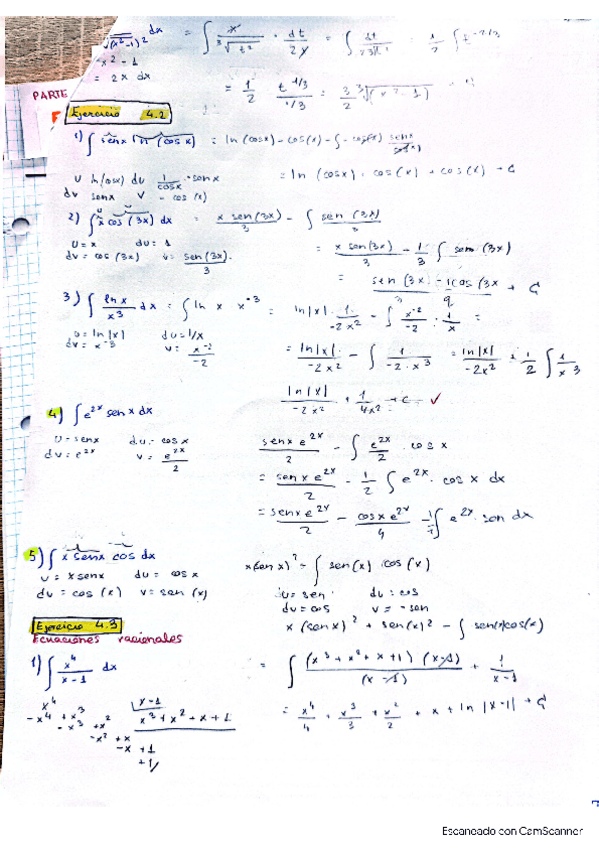 ∛(x²-1)² dx = ∫ x/∛t² · dt/2x = ∫ dt/2∛t² · 1/2 ∫ t^-2/3
x² - 1
= 2x dx = 1/2 t^1/3 / 1/3 = 3/2 ∛(x²-1)
PARTE
Ejercicio 4.2
1) ∫ senx ln (cosx) = ln(cosx) - cos(x) - ∫ - cos(x) senx/cos(x)
U ln(cosx) du 1/cosx · -senx = ln (cosx) · cos(x) + cos(x) + C
dv senx v - cos(x)
2) ∫ x cos(3x) dx = x sen(3x)/3 - ∫ sen(3x)/3
U = x du = 1 = x sen(3x)/3 - 1/3 ∫ sen(3x)
dv = cos(3x) v = sen(3x)/3
= sen(3x)/3 - 1cos(3x/9 + C
3) ∫ lnx/x³ dx = ∫ ln x x^-3 = ln|x| · 1/-2x² - ∫ x^-2/-2 · 1/x =
u = ln|x| du = 1/x
dv = x^-3 v = x^-2/-2 = ln|x|/-2x² - ∫ 1/-2·x³ = ln|x|/-2x² + 1/2 ∫ 1/x³
ln|x|/-2x² + 1/4x² + C ✓
4) ∫ e^2x sen x dx
U = senx du = cosx senx e^2x/2 - ∫ e^2x/2 · cos x
dv = e^2x v = e^2x/2
= senx e^2x/2 - 1/2 ∫ e^2x · cos x dx
= senx e^2x/2 - cosx e^2x/4 - 1/4 ∫ e^2x · sen dx
5) ∫ x senx cos dx
u = x senx du = cos x x(sen x)² - ∫ sen(x) cos(x)
dv = cos(x) v = sen(x) u = sen du = cos
dv = cos v = -sen
Ejercicio 4.3 x(senx)² + sen(x)² - ∫ sen(x)cos(x)
Ecuaciones racionales
1) ∫ x⁴/x-1 dx = ∫ (x³+x²+x+1)(x-1)/(x-1) + 1/x-1
x⁴ x-1
-x⁴+x³ x³+x²+x+1 = x⁴/4 + x³/3 + x²/2 + x + ln|x-1| + C
-x³+x²
-x²+x
-x+1
+1
Escaneado con CamScanner